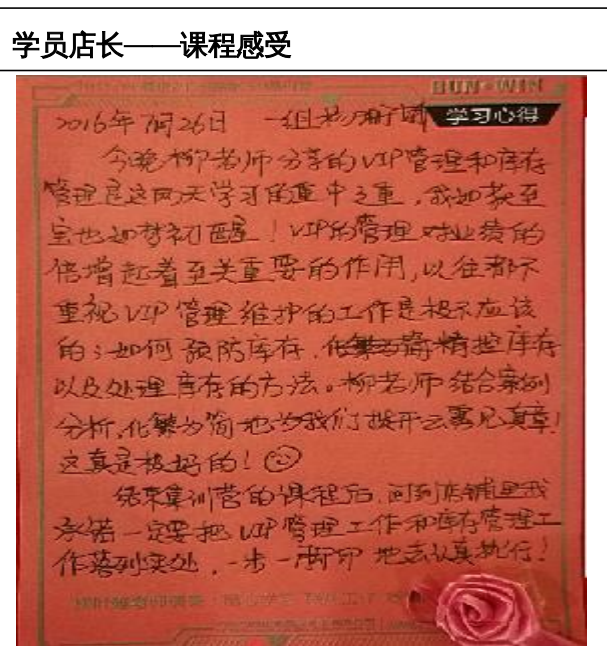 学员店长——课程感受
RUN·WIN
2016年7月26日 一组
学习心得
今晚柳老师分享的VIP管理和库存
管理是这两天学习的重中之重，我如获至
宝也如梦初醒！VIP的管理对业绩的
倍增起着至关重要的作用，以往都不
重视VIP管理维护的工作是极不应该
的；如何预防库存，化繁为简精控库存
以及处理库存的方法。柳老师结合案例
分析，化繁为简地为我们拨开云雾见真章！
这真是极好的！
结束集训营的课程后，回到店铺里我
承诺一定要把VIP管理工作和库存管理工
作落到实处，一步一脚印地去认真执行！